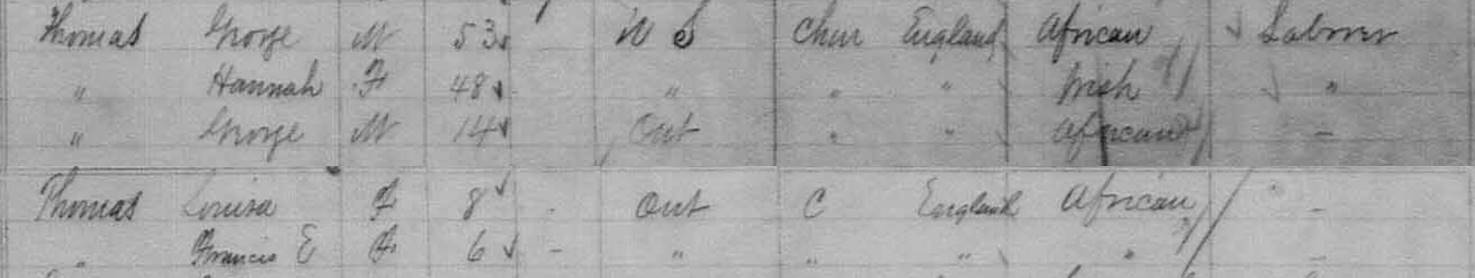 Thomas George M 53 U S Chur England African Laborer
" Hannah F 48 " " " Irish "
" George M 14 Ont " " African -
Thomas Louisa F 8 - Ont C England African -
" Francis E F 6 - " " " " -